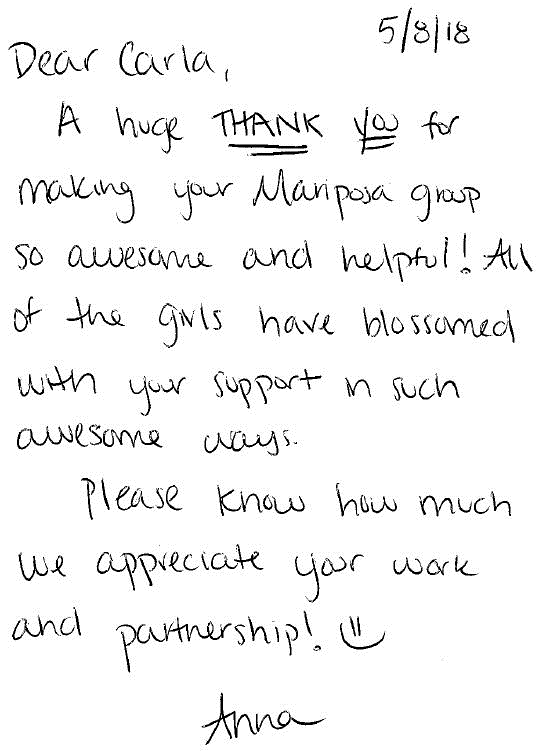 5/8/18
Dear Carla,
A huge THANK you for
making your Mariposa group
so awesome and helpful! All
of the girls have blossomed
with your support in such
awesome ways.
Please know how much
we appreciate your work
and partnership! :)
Anna